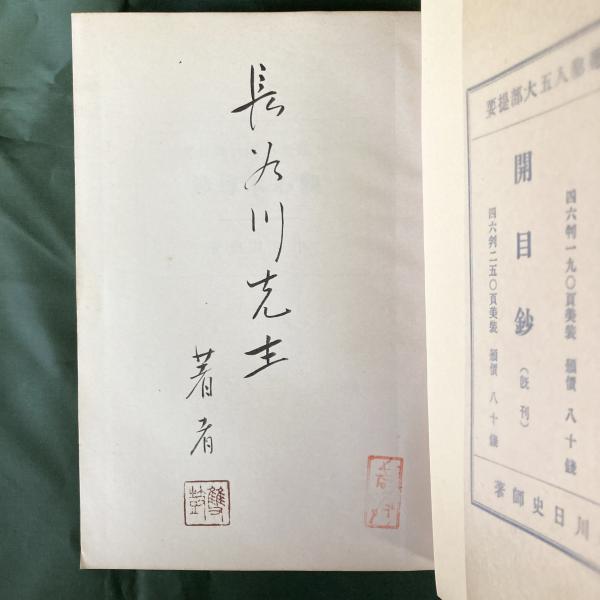 長谷川先生
著者
五大部提要
四六判一九〇頁美装 頒價 八十錢
開目鈔(既刊)
四六判二五〇頁美装 頒價 八十錢
川日史師著